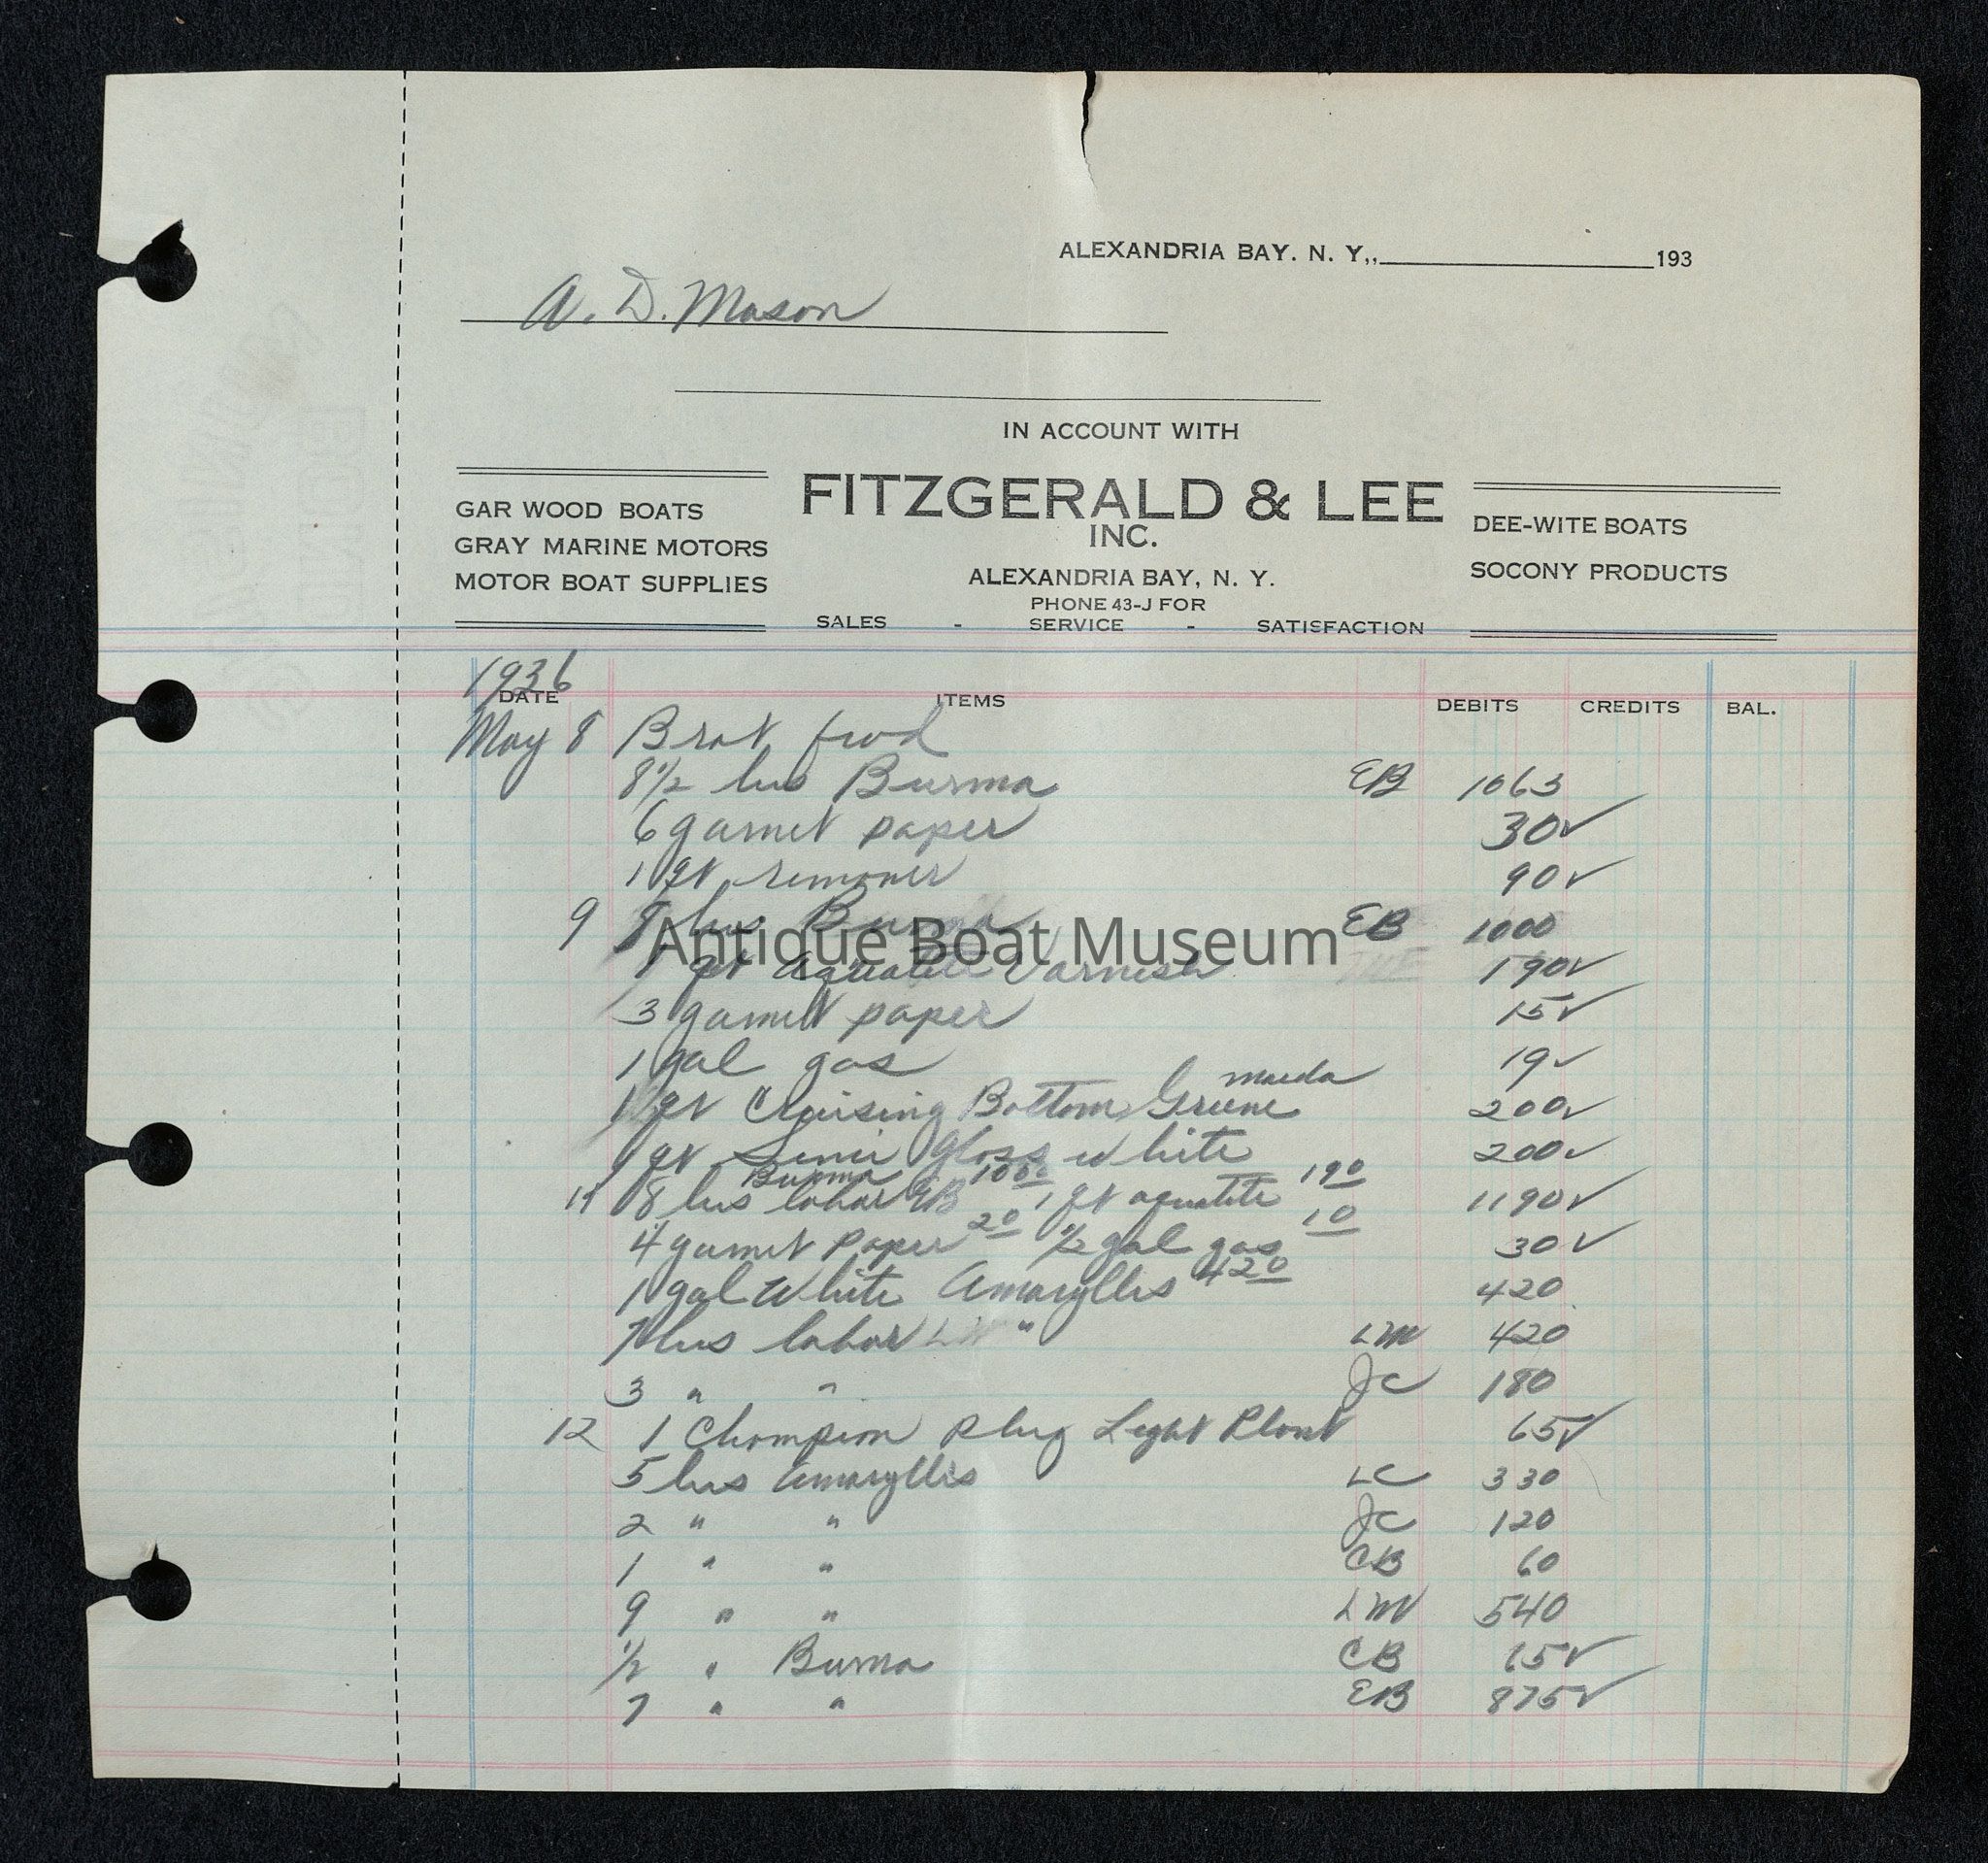 ALEXANDRIA BAY. N. Y,, 193
A. D. Mason
IN ACCOUNT WITH
FITZGERALD & LEE
INC.
ALEXANDRIA BAY, N. Y.
PHONE 43-J FOR
SALES - SERVICE - SATISFACTION
GAR WOOD BOATS
GRAY MARINE MOTORS
MOTOR BOAT SUPPLIES
DEE-WITE BOATS
SOCONY PRODUCTS
1936
DATE ITEMS DEBITS CREDITS BAL.
May 8 Brot fwd
8 1/2 hrs Burma EB 1063
6 garnet paper 30 ✓
1 qt remover 90 ✓
9 8 hrs Burma EB 1000
1 qt Aquatite Varnish 190 ✓
3 garnet paper 15 ✓
1 gal gas 19 ✓
1 qt Cruising Bottom Greene 200 ✓
1 qt Semi Gloss white 200 ✓
Burma 1000 190
11 8 hrs labor EB 1 qt aquatite 1190 ✓
20 10
4 garnet paper 1/2 gal gas 30 ✓
1 gal White Amaryllis 420 420
7 hrs labor " LM 420
3 " " JC 180
12 1 Champion plug Light Plant 65 ✓
5 hrs Amaryllis LC 330
2 " " JC 120
1 " " CB 60
9 " " LM 540
1/2 " Burma CB 65 ✓
7 " " EB 875 ✓
Antique Boat Museum